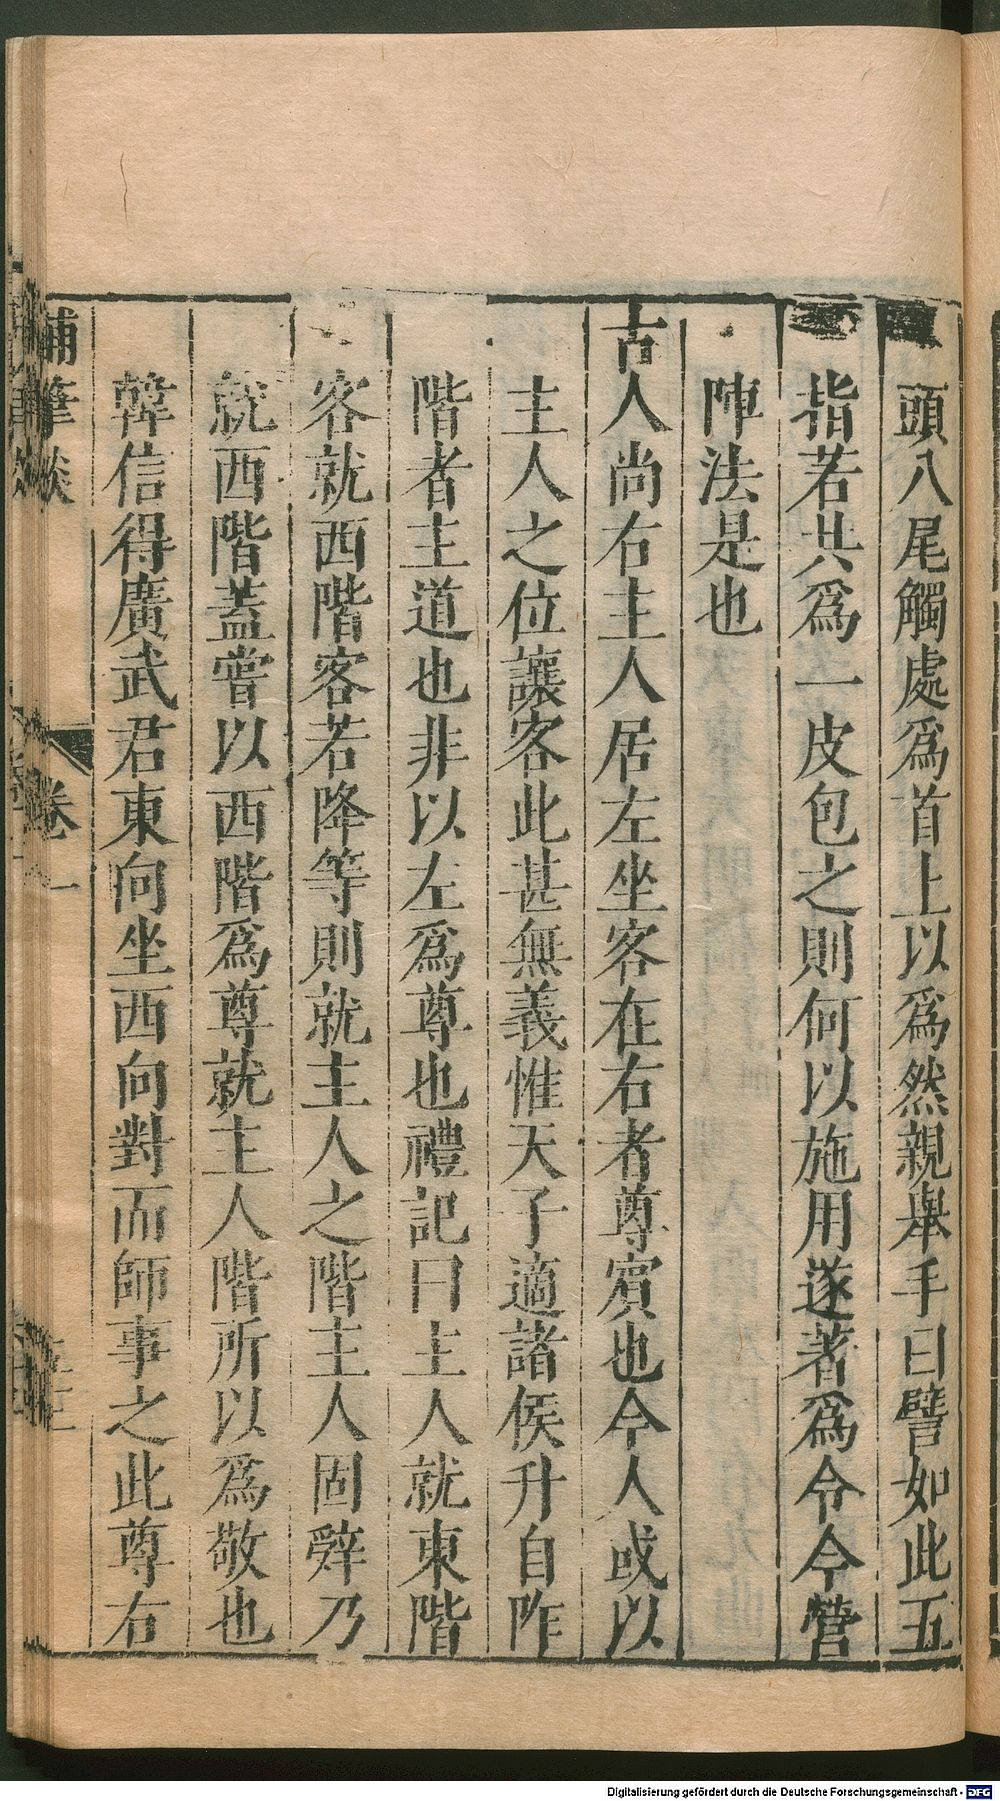 頭八尾觸處爲首上以爲然親舉手曰譬如此五
指若共爲一皮包之則何以施用遂著爲令今營
陣法是也
古人尚右主人居左坐客在右者尊賓也今人或以
主人之位讓客此甚無義惟天子適諸侯升自阼
階者主道也非以左爲尊也禮記曰主人就東階
客就西階客若降等則就主人之階主人固辭乃
就西階蓋嘗以西階爲尊就主人階所以爲敬也
韓信得廣武君東向坐西向對而師事之此尊右
補筆談
卷一
Digitalisierung gefördert durch die Deutsche Forschungsgemeinschaft - DFG